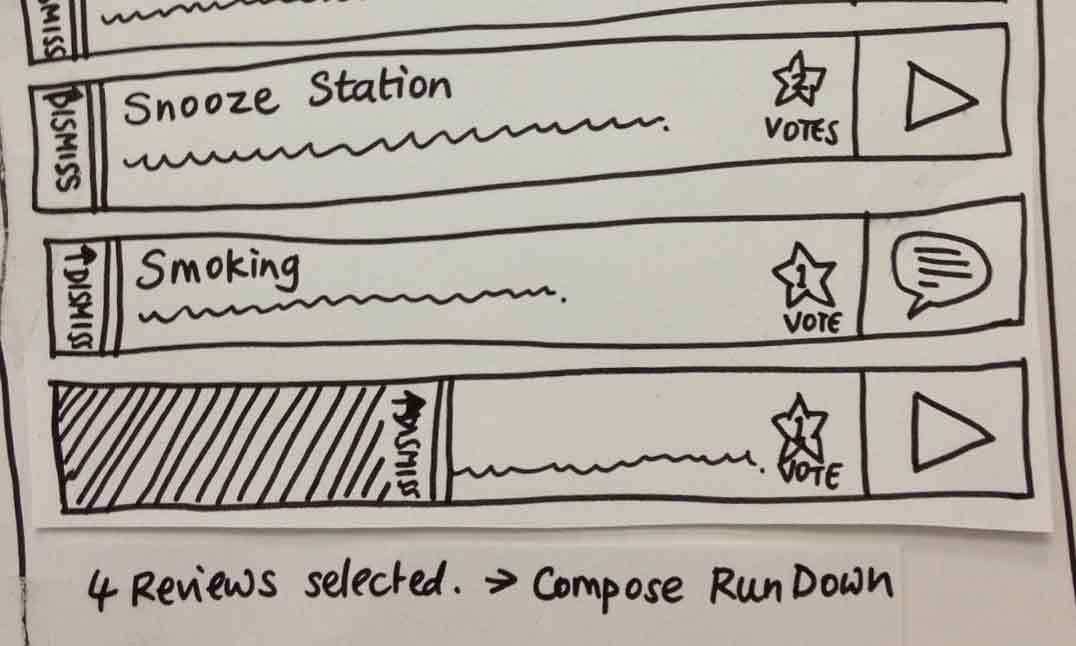 MISS
DISMISS
Snooze Station
2
VOTES
DISMISS
Smoking
1
VOTE
DISMISS
1
VOTE
4 Reviews selected. → Compose RunDown